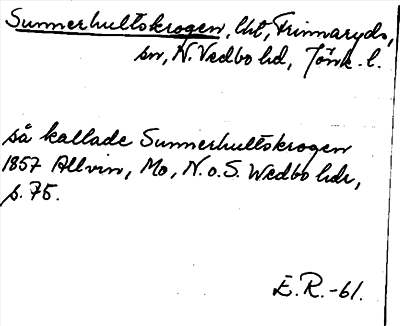 Sunnerhultskrogen, lht, Frinnaryds,
sn, N. Vedbo hd, Jönk. l.
så kallade Sunnerhultskrogen
1857 Allvin, Mo, N. o. S. Wedbo hdr,
s. 75.
E. R. -61.